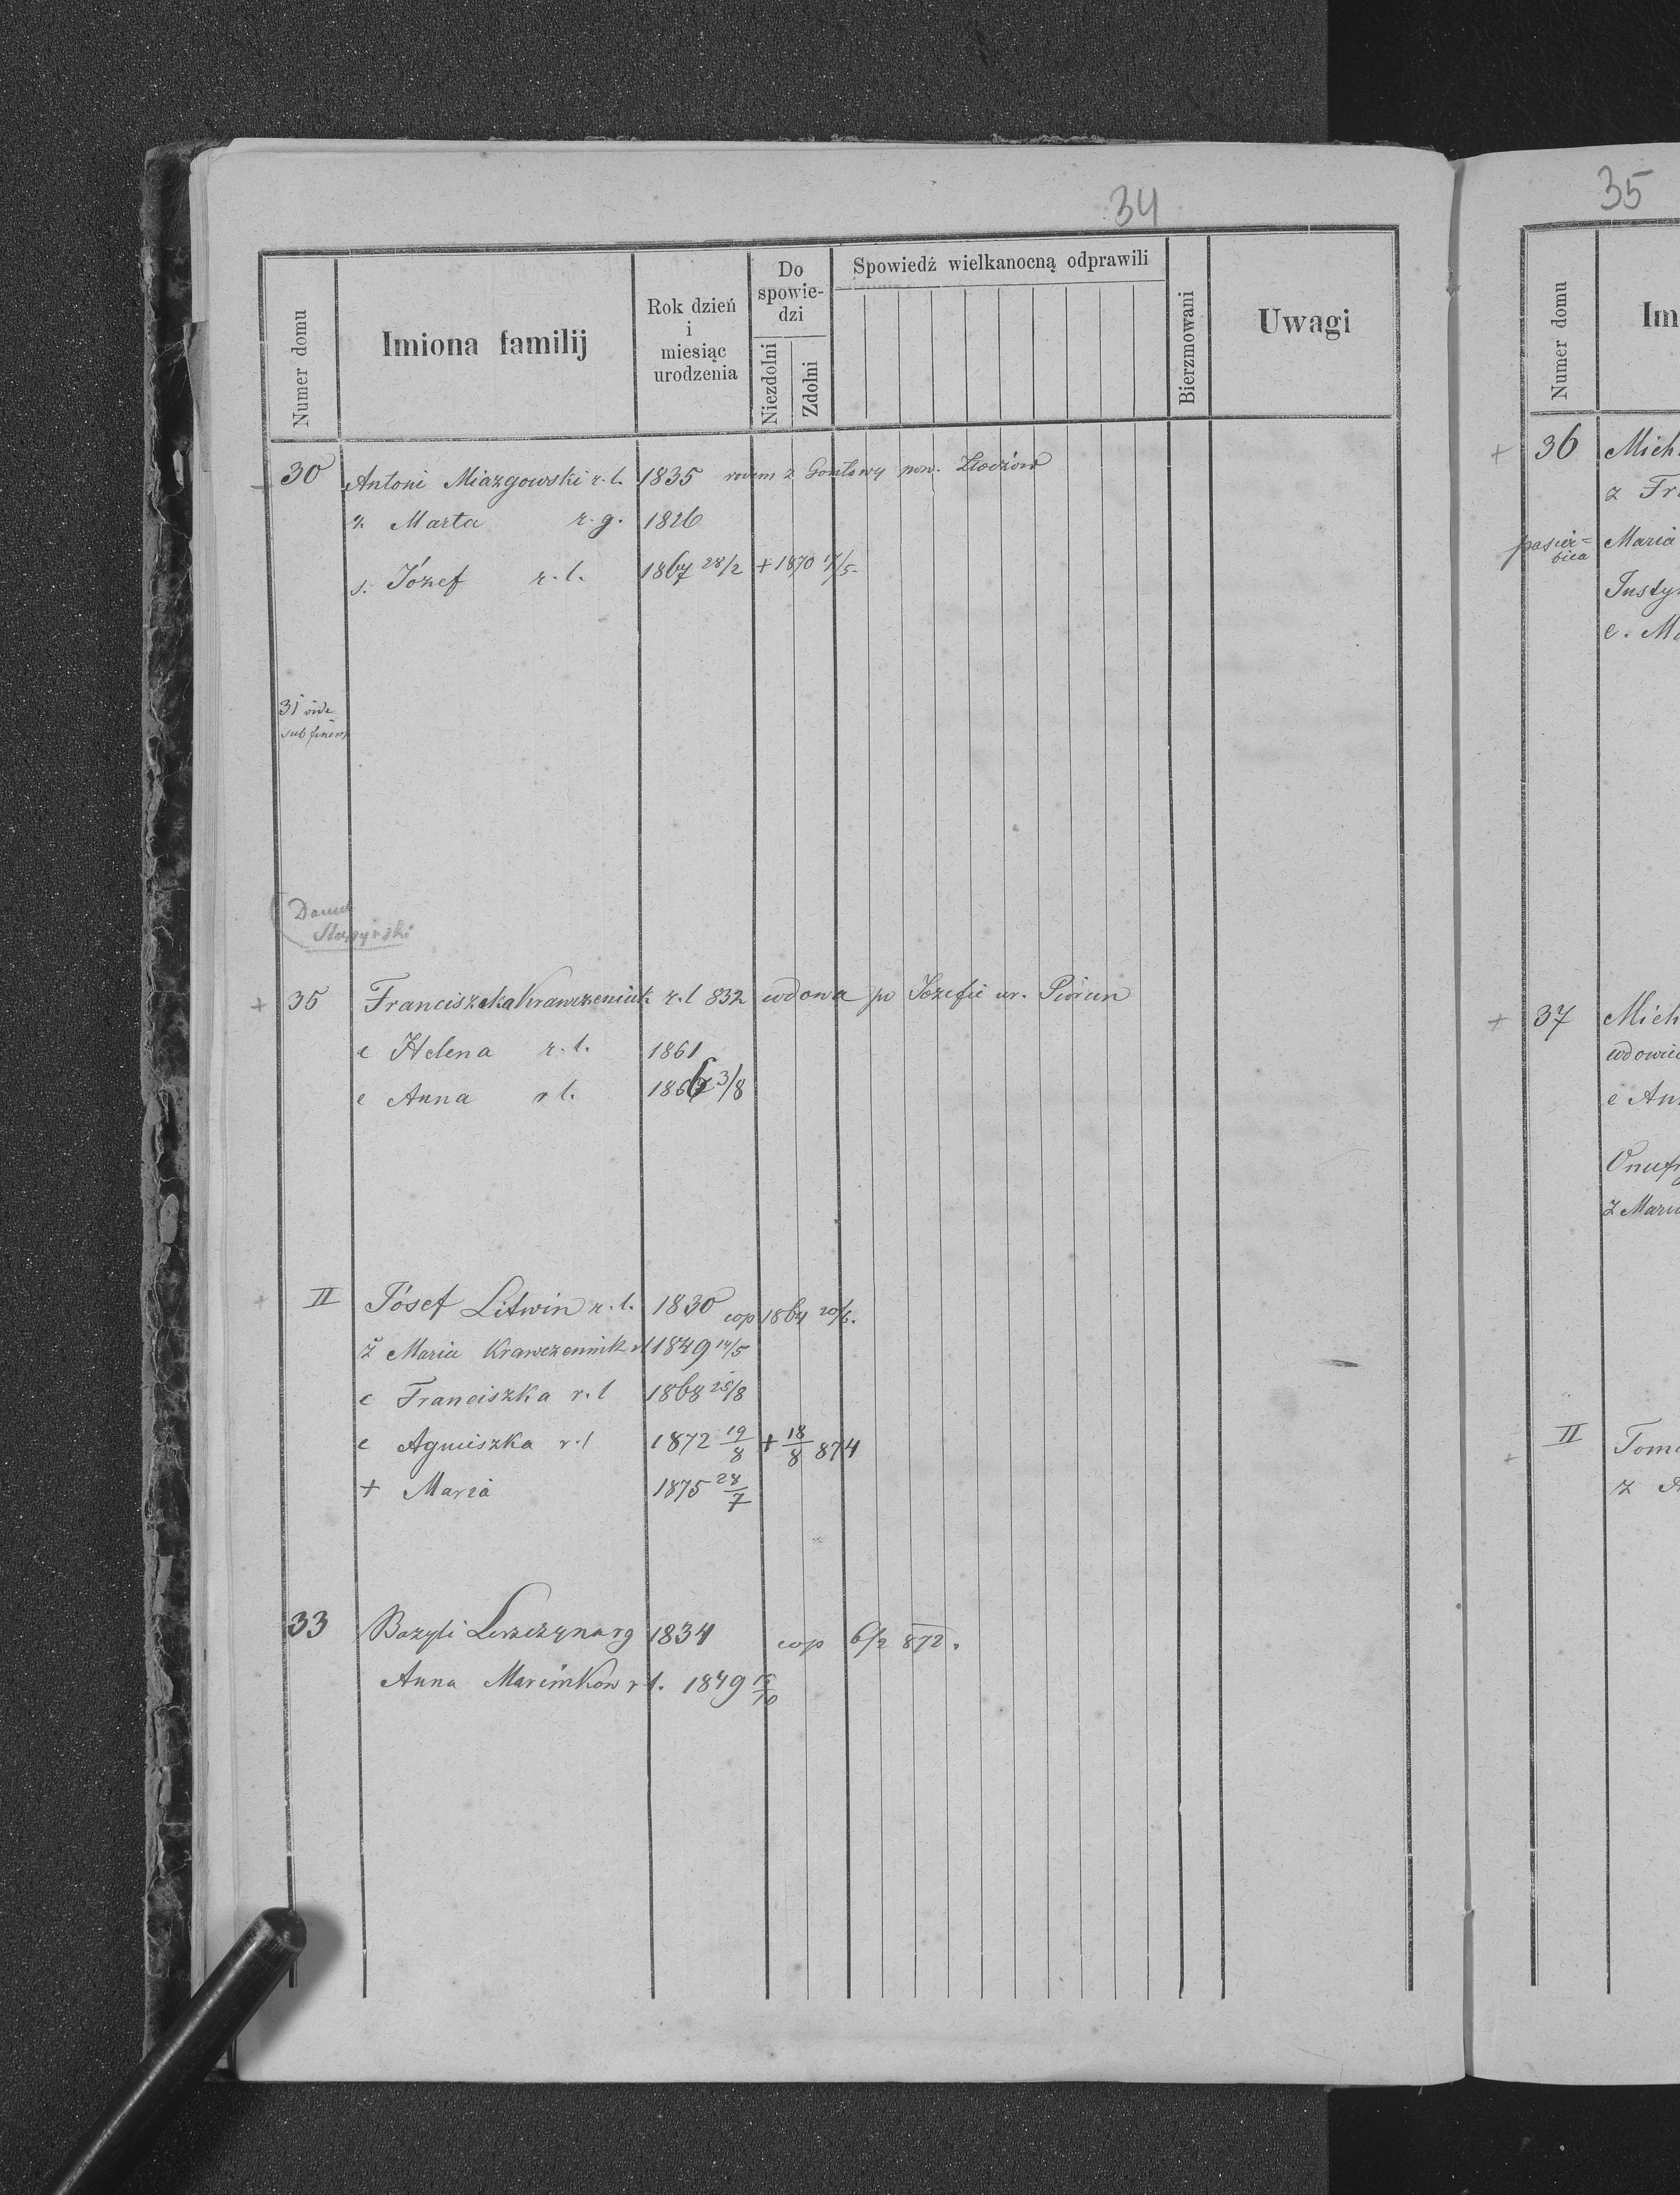 34
Numer domu
Imiona familij
Rok dzień
i
miesiąc
urodzenia
Do
spowie-
dzi
Niezdolni
Zdolni
Spowiedź wielkanocną odprawili
Bierzmowani
Uwagi
30 Antoni Miazgowski r. l. 1835 rodem z pow. Złoczów
ż. Marta r. g. 1826
s. Józef r. l. 1867 28/2 + 1870 17/5
31 vide
sub finem
Daniel
35 Franciszka Krawczeniuk r. l 832 wdowa po Józefie ur. Piorun
c Helena r. l. 1861
c Anna r l. 186 3/8
II Józef Litwin r. l. 1830 cop 1864 20/6.
ż Maria Krawczeniuk rl 1849 14/5
c Franciszka r. l 1868 25/8
c Agnieszka r. l 1872 19/8 + 18/8 874
+ Maria 1875 28/7
33 Bazyli r g 1834 cop 6/2 872.
Anna Marcinkow r l. 1849
35
Numer domu
Im
+ 36 Mich
z Fr
pasier=
bica Maria
Justy
c. Ma
+ 37 Mich
wdowie
c An
Onuf
ż Mari
II Tom
ż